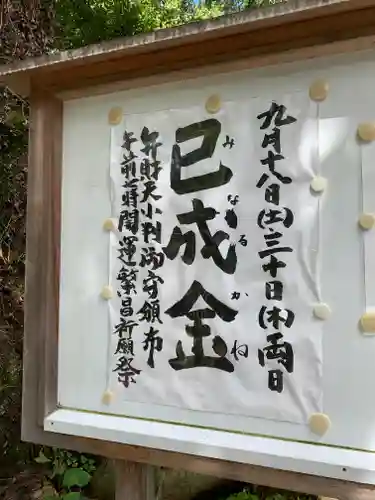 九月十八日(土)三十日(木)両日
巳成金
みなるかね
弁財天小判御守頒布
午前萬開運繁昌祈願祭